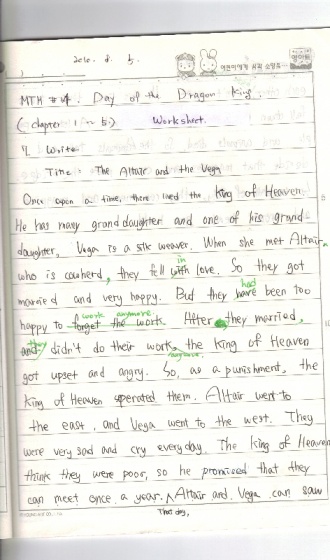 2010. 8. 5.
MTH #14. Day of the Dragon King.
(chapter 1 ~ 5.) Worksheet.
1. Write
Title: The Altair and the Vega
Once upon a time, there lived the king of Heaven.
He has many granddaughter and one of his grand-
daughter, Vega is a silk weaver. When she met Altair
who is cowherd, they fell with love. So they got
in
married and very happy. But they have been too
had
happy to forget the work After they married,
work anymore.
and didn't do their work, the king of Heaven
they
anymore.
got upset and angry. So, as a punishment, the
king of Heaven seperated them. Altair went to
the east, and Vega went to the west. They
were very sad and cry everyday. The king of Heaven
think they were poor, so he promised that they
can meet once a year. Altair and Vega can saw
That day,